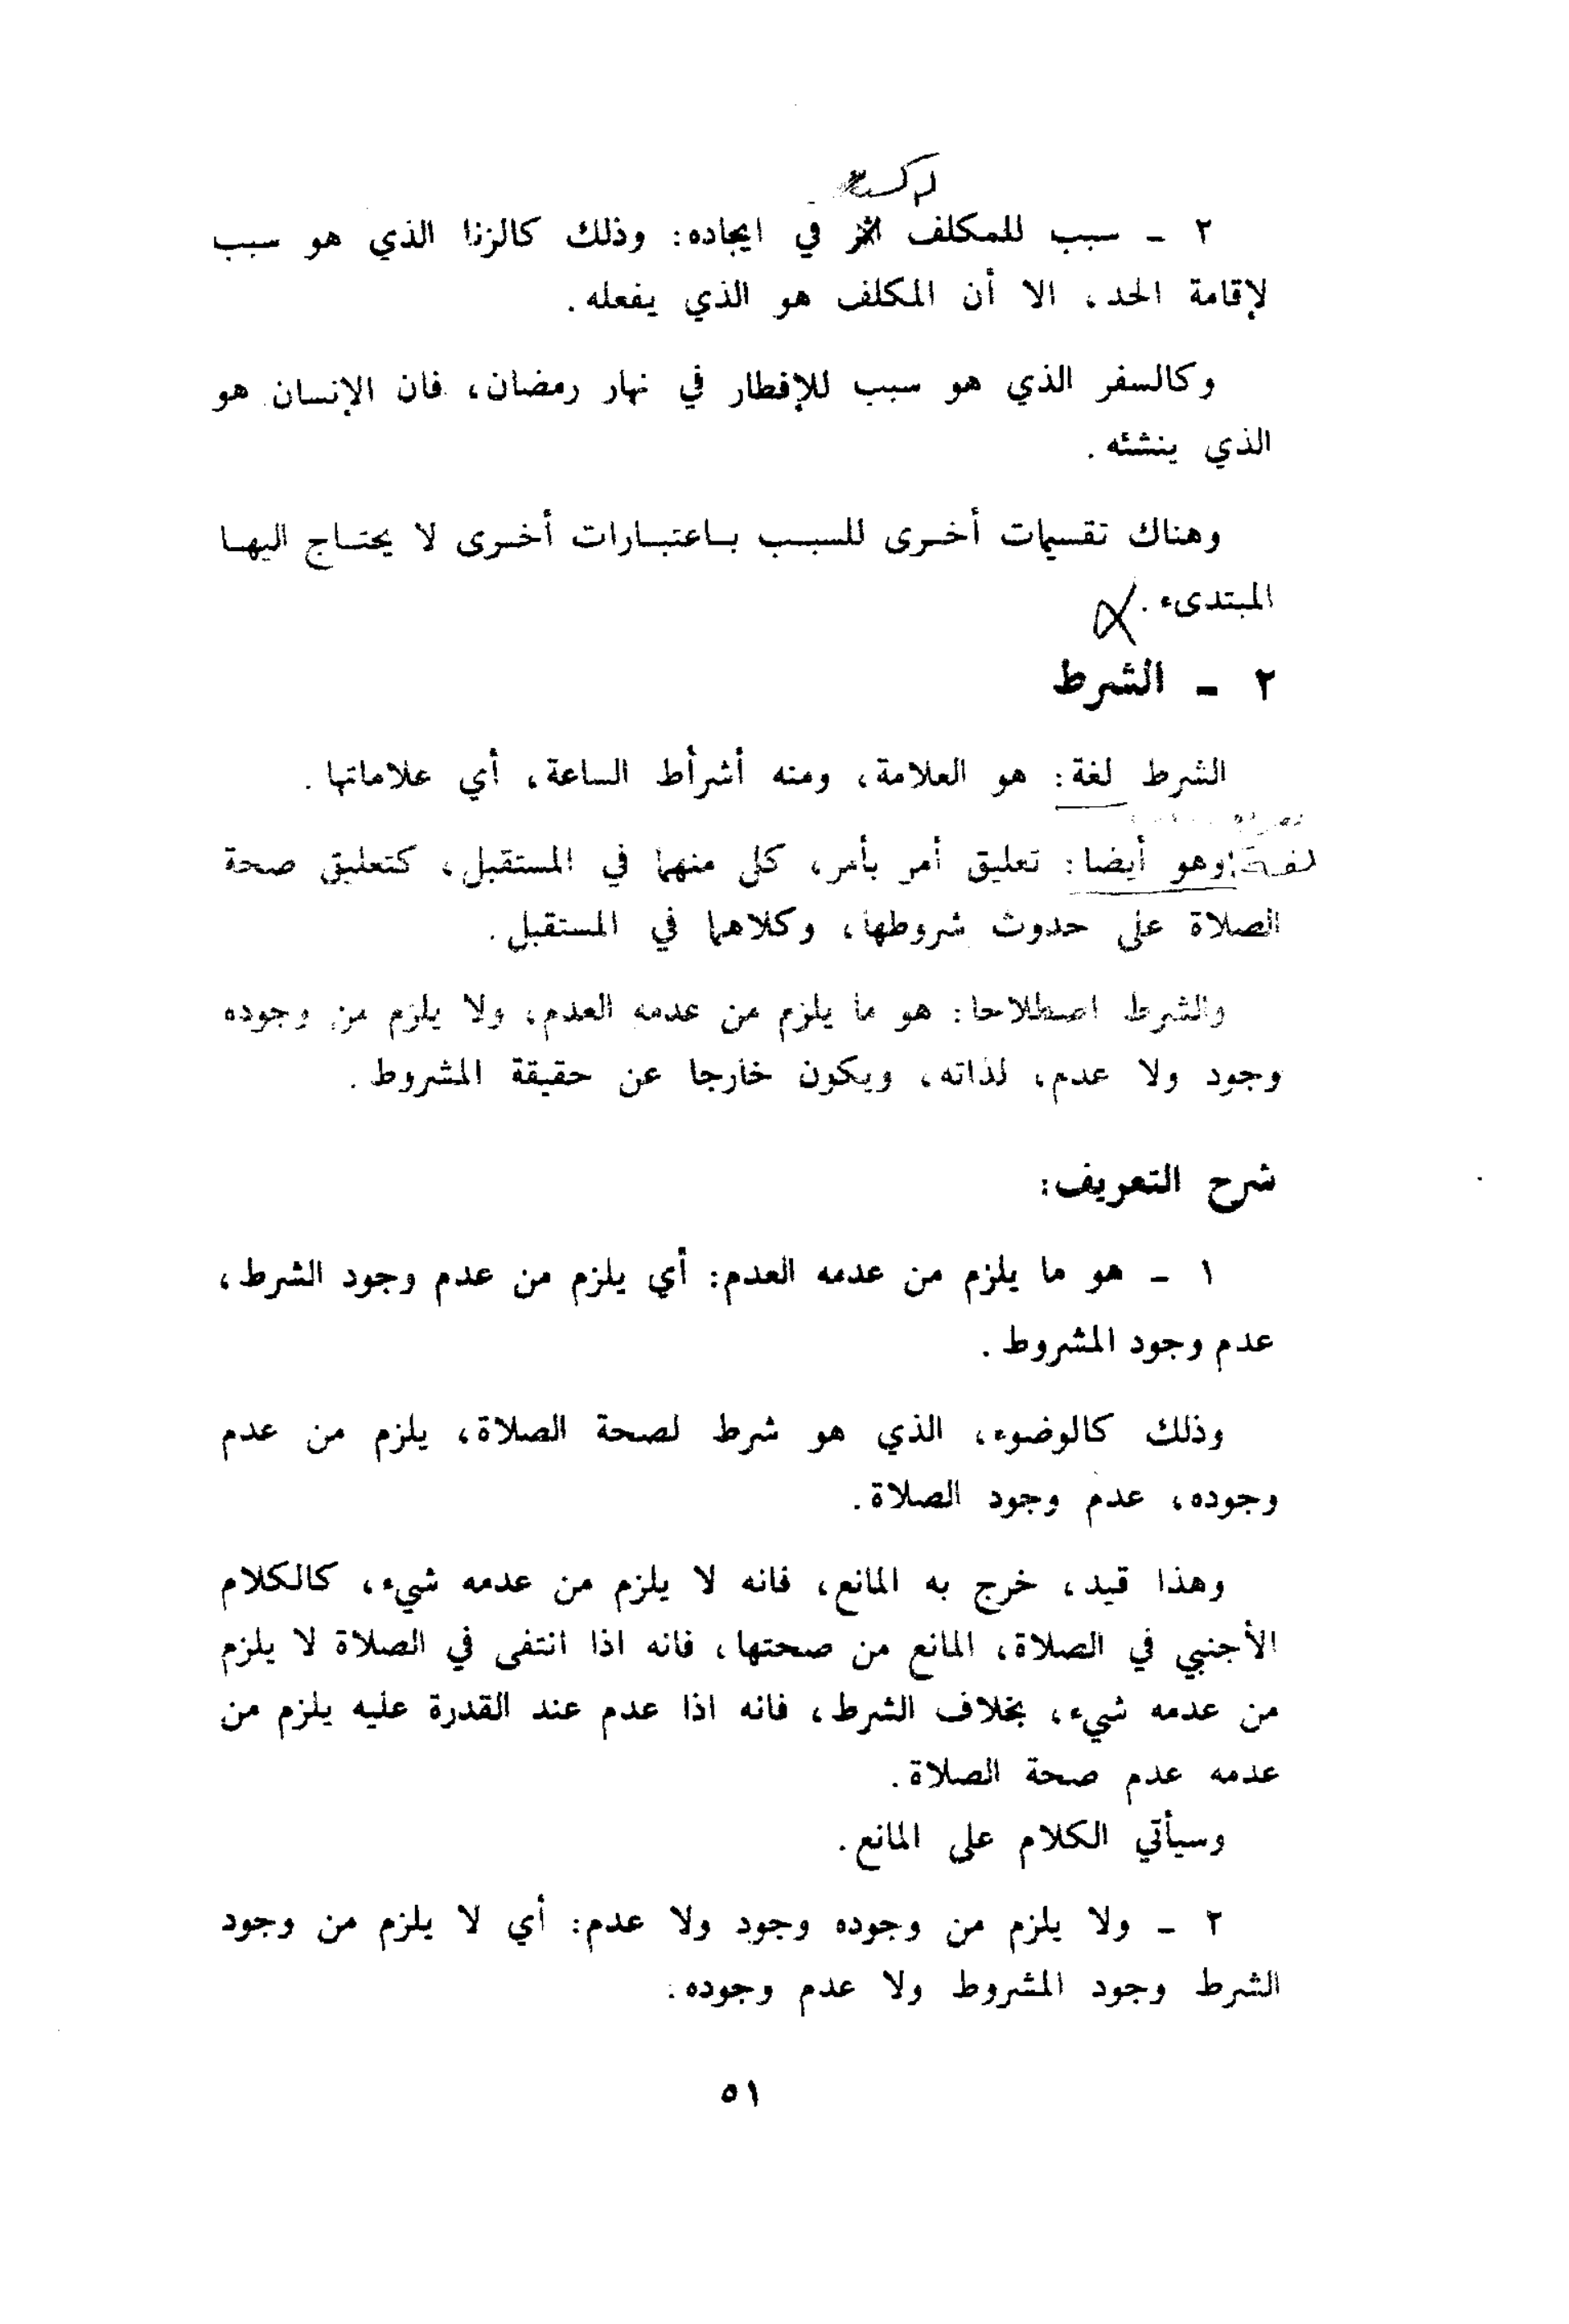 ٢ ـ سبب للمكلف اثر في ايجاده: وذلك كالزنا الذي هو سبب
لإقامة الحد، الا أن المكلف هو الذي يفعله.
وكالسفر الذي هو سبب للإفطار في نهار رمضان، فان الإنسان هو
الذي ينشئه.
وهناك تقسيمات أخرى للسبب باعتبارات أخرى لا يحتاج اليها
المبتدىء.
٢ ـ الشرط
الشرط لغة: هو العلامة، ومنه أشرأط الساعة، أي علاماتها.
لغة: وهو أيضا: تعليق أمر بأمر، كل منهما في المستقبل، كتعليق صحة
الصلاة على حدوث شروطها، وكلاهما في المستقبل.
والشرط اصطلاحا: هو ما يلزم من عدمه العدم، ولا يلزم من وجوده
وجود ولا عدم، لذاته، ويكون خارجا عن حقيقة المشروط.
شرح التعريف:
١ ـ هو ما يلزم من عدمه العدم: أي يلزم من عدم وجود الشرط،
عدم وجود المشروط.
وذلك كالوضوء، الذي هو شرط لصحة الصلاة، يلزم من عدم
وجوده، عدم وجود الصلاة.
وهذا قيد، خرج به المانع، فانه لا يلزم من عدمه شيء، كالكلام
الأجنبي في الصلاة، المانع من صحتها، فانه اذا انتفى في الصلاة لا يلزم
من عدمه شيء، بخلاف الشرط، فانه اذا عدم عند القدرة عليه يلزم من
عدمه عدم صحة الصلاة.
وسيأتي الكلام على المانع.
٢ ـ ولا يلزم من وجوده وجود ولا عدم: أي لا يلزم من وجود
الشرط وجود المشروط ولا عدم وجوده:
٥١